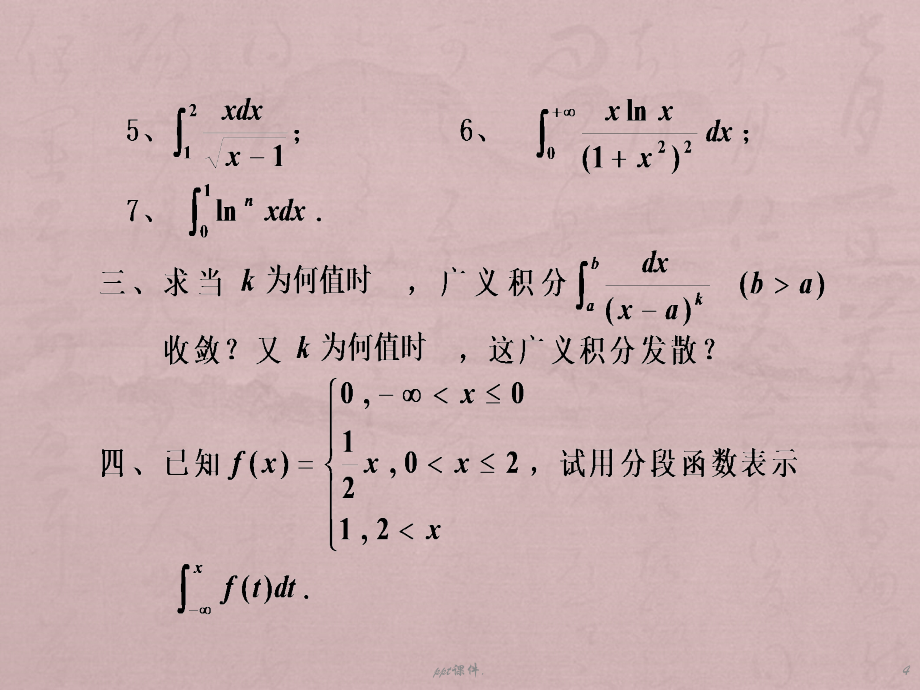 5、∫₁² xdx/√(x−1)； 6、 ∫₀^{+∞} x ln x/(1+x²)² dx；
7、∫₀¹ lnⁿ xdx.
三、求当 k 为何值时，广义积分 ∫ₐᵇ dx/(x−a)ᵏ (b > a)
收敛？又 k 为何值时，这广义积分发散？
四、已知 f(x) = { 0, −∞ < x ≤ 0
1/2 x, 0 < x ≤ 2，试用分段函数表示
1, 2 < x
∫_{−∞}^{x} f(t)dt.
ppt课件. 4